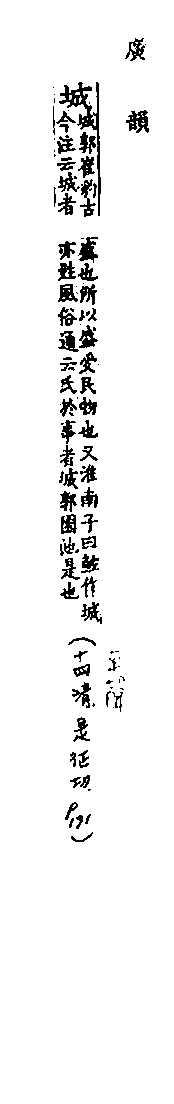 廣韻
城
城郭崔豹古
今注云城者
盛也所以盛受民物也又淮南子曰鮌作城
亦姓風俗通云氏於事者城郭園池是也
(十四清 是征切 P191)